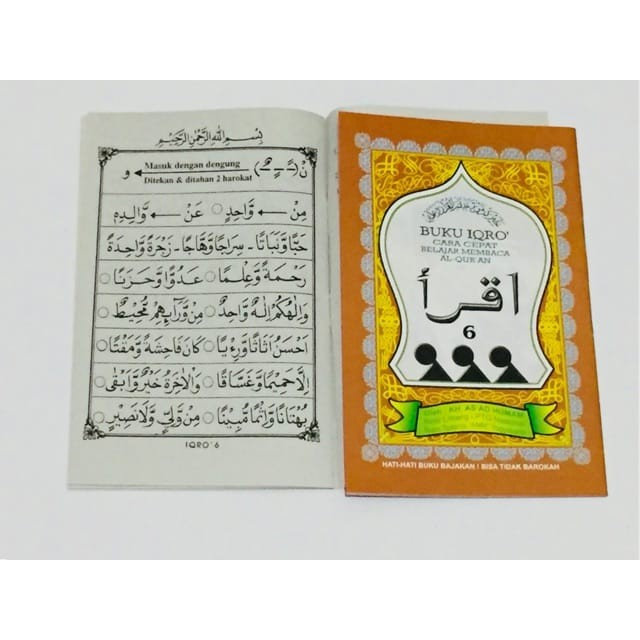 بِسْمِ اللهِ الرَّحْمٰنِ الرَّحِيْمِ
نْ (ــًــٍــٌ) Masuk dengan dengung و
Ditekan & ditahan 2 harokat
مِنْ ← وَّاحِدٍ ○ عَنْ ← وَّالِدِهٖ
حَبًّا وَّنَبَاتًا - سِرَاجًا وَّهَّاجًا - زَجْرَةٌ وَّاحِدَةٌ
رَحْمَةً وَّعِلْمًا ○ عَدُوًّا وَّحَزَنًا ○
وَاِلٰهُكُمْ اِلٰهٌ وَّاحِدٌ ○ مِنْ وَّرَآىِٕهِمْ مُّحِيْطٌ ○
اَحْسَنُ اَثَاثًا وَّرِءْيًا ○ كَانَ فَاحِشَةً وَّمَقْتًا ○
اِلَّا حَمِيْمًا وَّغَسَّاقًا ○ وَالْاٰخِرَةُ خَيْرٌ وَّاَبْقٰى ○
بُهْتَانًا وَّاِثْمًا مُّبِيْنًا ○ مِنْ وَّلِيٍّ وَّلَا نَصِيْرٍ ○
IQRO' 6
BUKU IQRO'
CARA CEPAT
BELAJAR MEMBACA
AL-QUR'AN
اقرأ
6
KH. AS'AD HUMAM
HATI-HATI BUKU BAJAKAN ! BISA TIDAK BAROKAH